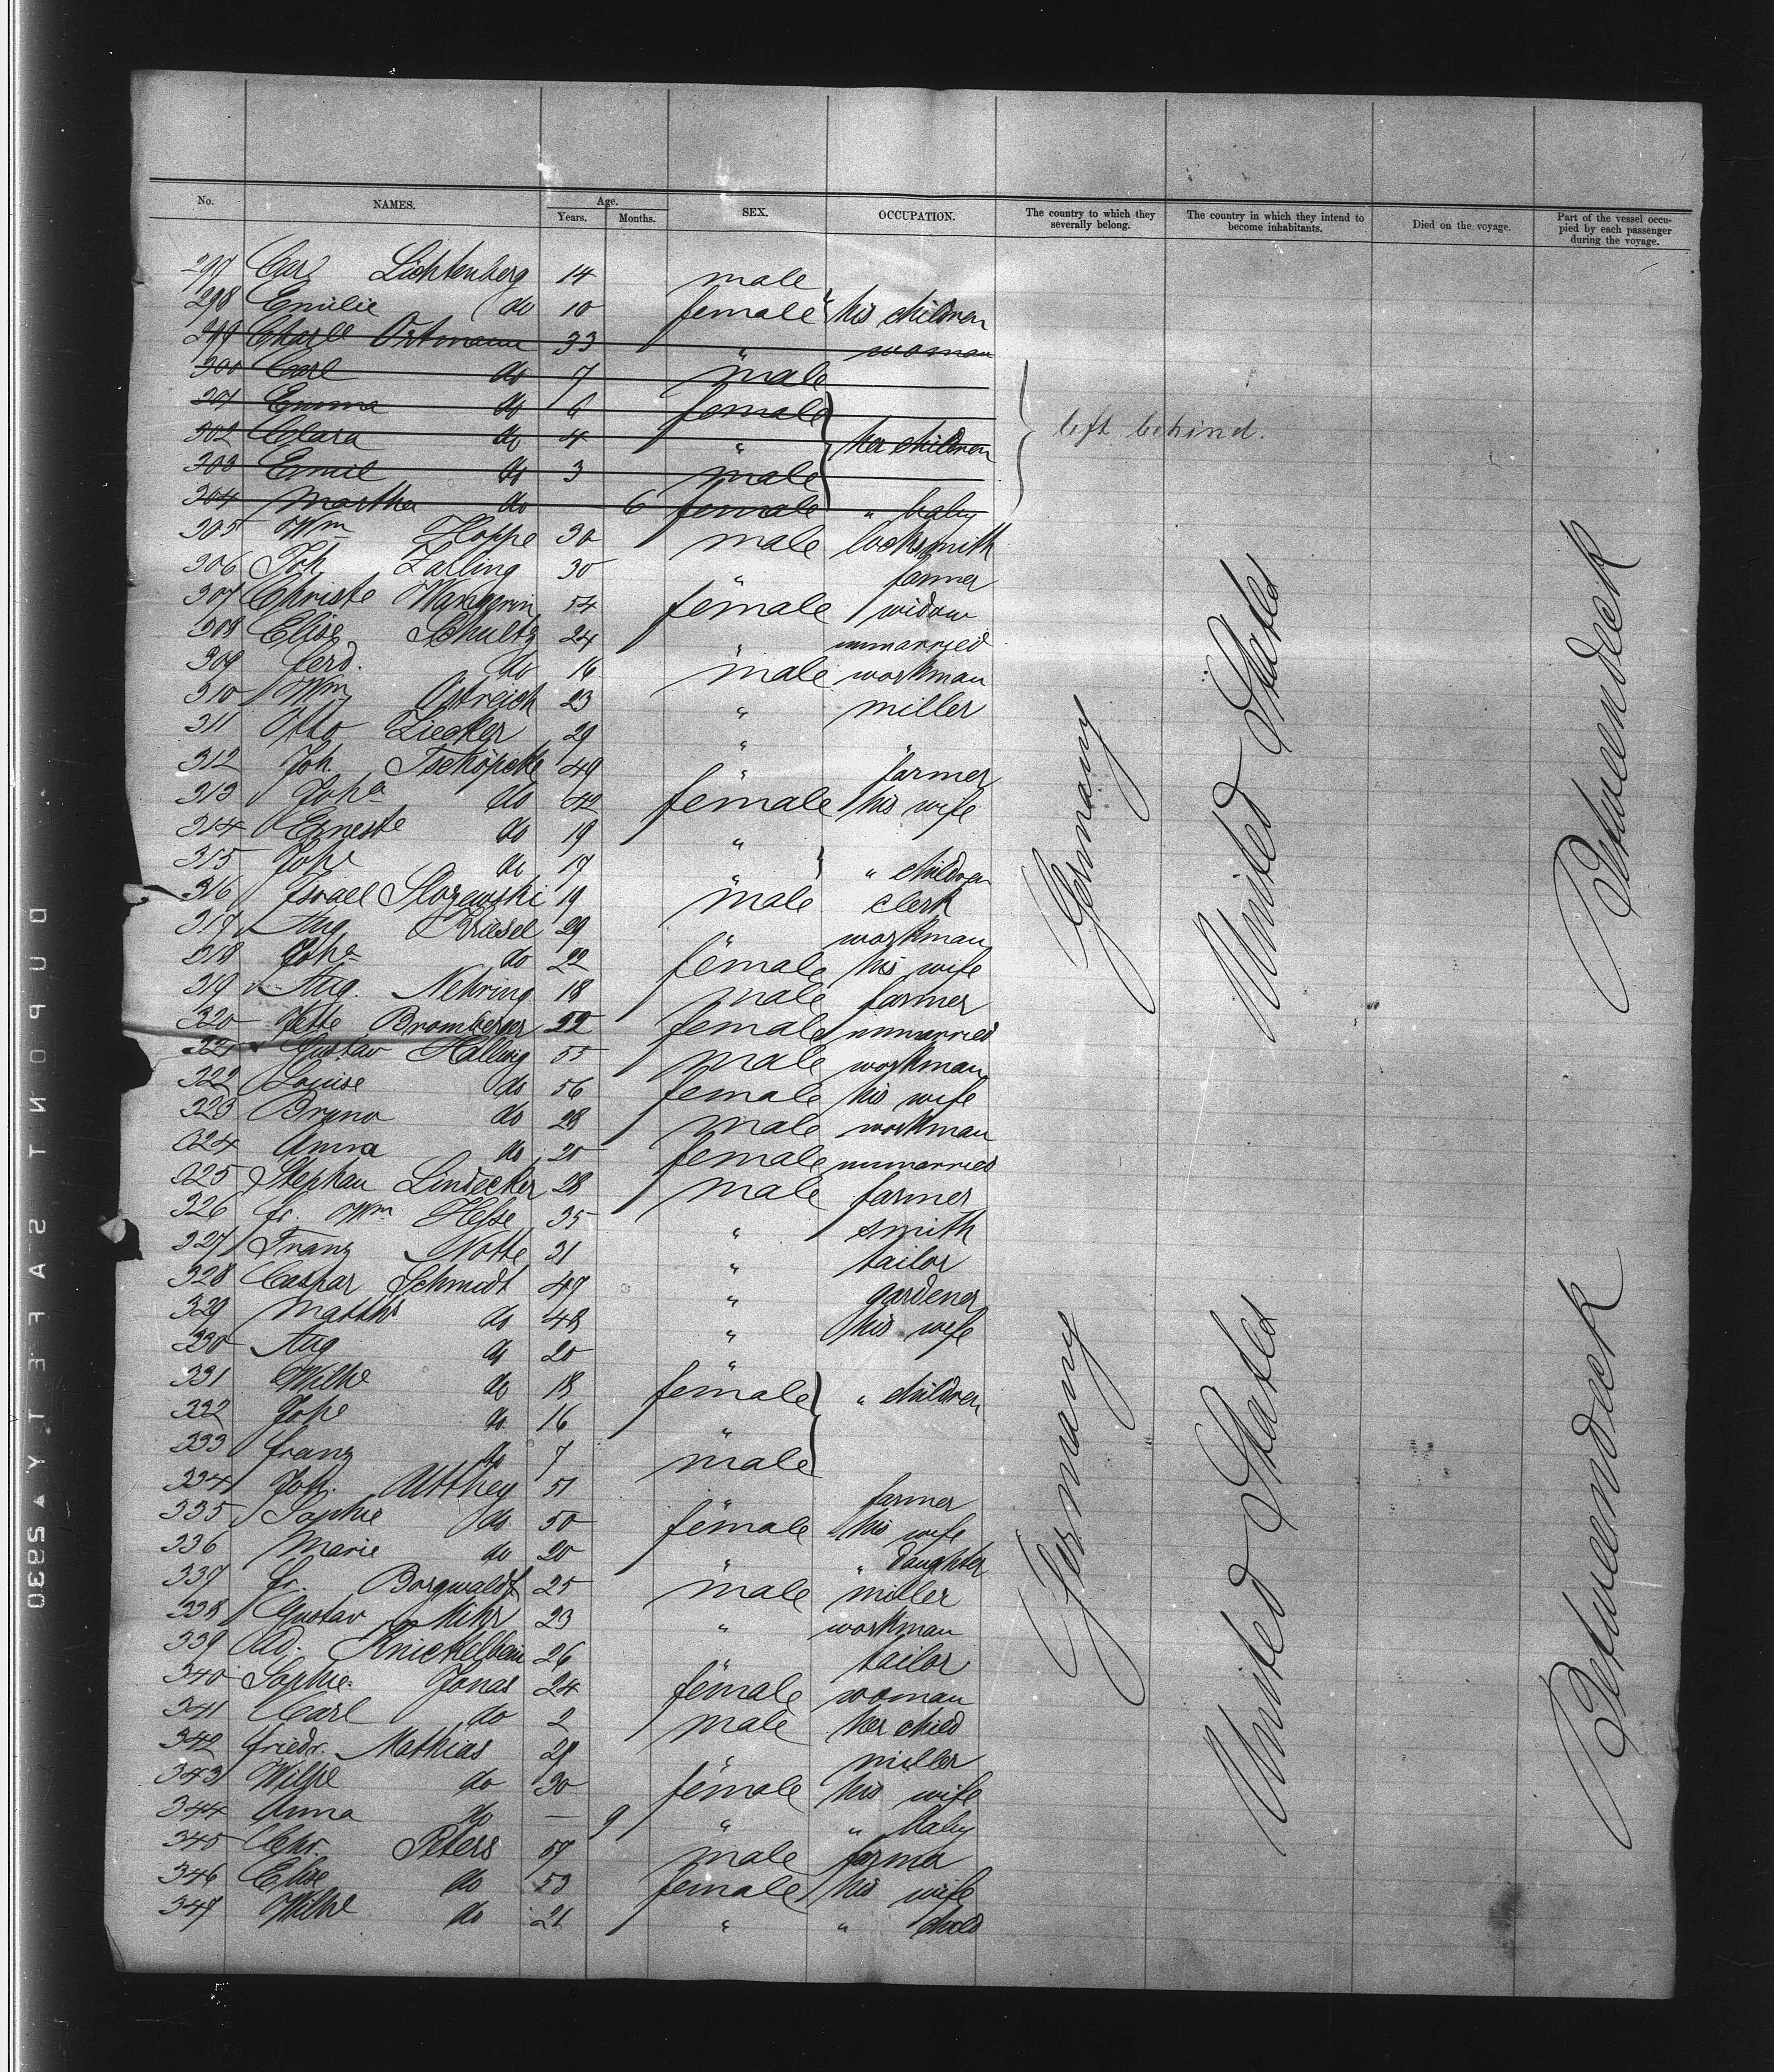 No. NAMES. Age. Years. Months. SEX. OCCUPATION. The country to which they severally belong. The country in which they intend to become inhabitants. Died on the voyage. Part of the vessel occupied by each passenger during the voyage.
297 Carl Lichtenberg 14 male
298 Emilie do 10 female his children
299 Charl Ortmann 33 " woman
300 Carl do 7 male
301 Emma do 6 female
302 Clara do 4 " her children left behind.
303 Emil do 3 male
304 Martha do 6 female " baby
305 Wm Hoppe 30 male locksmith
306 Joh. Zarling 30 " farmer
307 Christe Mangrin 54 female widow
308 Elise Schultz 24 " unmarried
309 Ferd. do 16 male workman
310 Wm Ostreich 23 " miller
311 Otto Ziecker 29 " "
312 Joh. Tschöpcke 49 " farmer
313 Joha do 42 female his wife
314 Erneste do 19 "
315 Johe do 17 " " children
316 Israel Slozewski 19 male clerk
317 Aug. Kriesel 29 " workman
318 Joha do 22 female his wife
319 Aug. Nehring 18 male farmer
320 Jette Bromberger 22 female unmarried
321 Gustav Hallwig 55 male workman
322 Louise do 56 female his wife
323 Bruno do 28 male workman
324 Anna do 20 female unmarried
325 Stephan Lindecker 28 male farmer
326 Fr. Wm Hesse 35 " smith
327 Franz Notte 31 " tailor
328 Caspar Schmidt 47 " gardener
329 Matths do 48 " his wife
330 Aug do 20 "
331 Wilhe do 18 female " children
332 Johe do 16 "
333 Franz do 7 male
334 Joh. Atthey 51 " farmer
335 Sophie do 50 female his wife
336 Marie do 20 " " daughter
337 Fr. Borgwaldt 25 male miller
338 Gustav Mihr 23 " workman
339 Ad. Knickelbein 26 " tailor
340 Sophie Jonas 24 female woman
341 Carl do 2 male her child
342 Friedr. Mathias 29 " miller
343 Wilhe do 30 female his wife
344 Anna do — 9 " " baby
345 Chr. Peters 57 male farmer
346 Elise do 53 female his wife
347 Wilhe do 21 " " child
Germany
United States
Betweendeck
Germany
United States
Betweendeck
DUPONT SAFETY 2930